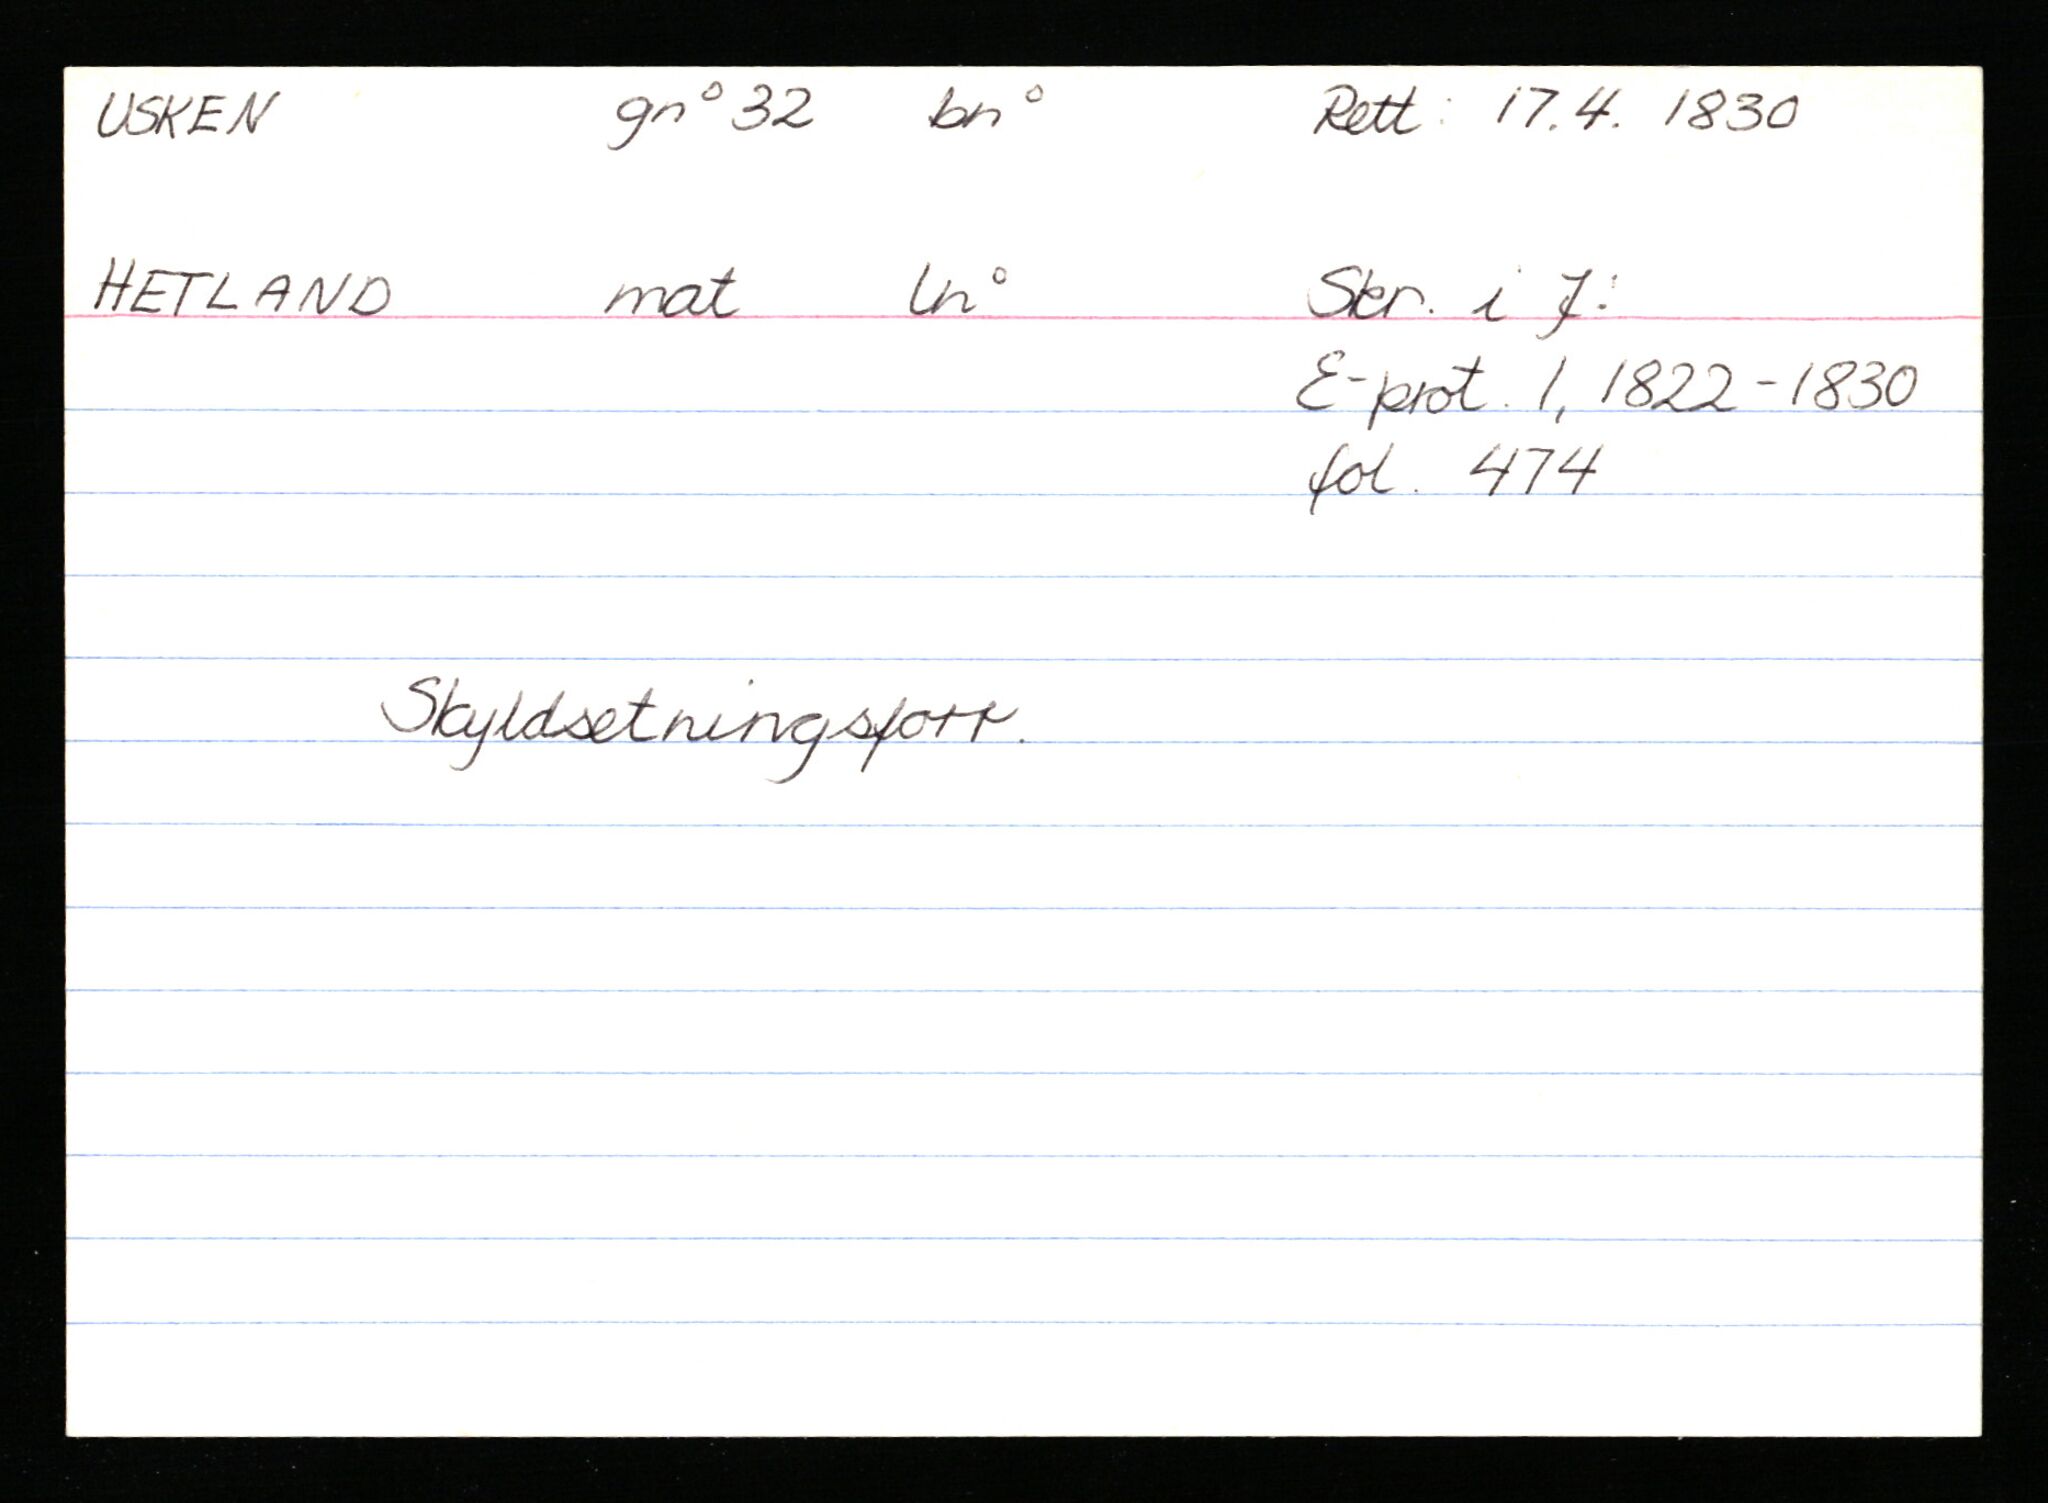 USKEN gn° 32 bn° Rett: 17.4. 1830
HETLAND mat ln° Skr. i J:
E-prot. 1, 1822-1830
fol. 474
Skyldsetningsforr.